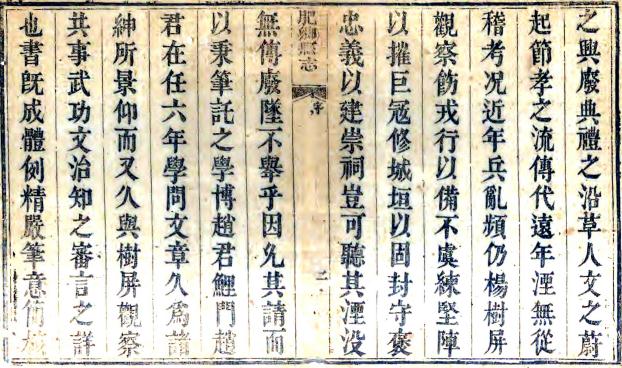 之興廢典禮之沿革人文之蔚
起節孝之流傳代遠年湮無從
稽考况近年兵亂頻仍楊樹屏
觀察飭戎行以備不虞練堅陣
以摧巨寇修城垣以固封守褒
忠義以建崇祠豈可聽其湮没
肥鄉縣志
序
二
無傳廢墜不舉乎因允其請而
以秉筆託之學博趙君鯉門趙
君在任六年學問文章久爲諸
紳所景仰而又久與樹屏觀察
共事武功文治知之審言之詳
也書旣成體例精嚴筆意簡